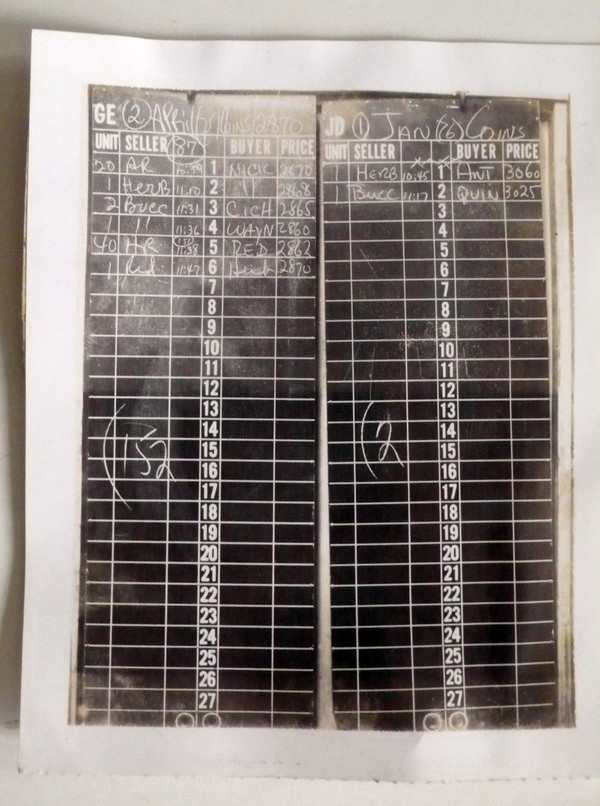 GE (2) April Coins 2870
UNIT SELLER 87 BUYER PRICE
20 AR 10:39 1 NICK 2870
1 HerB 11:10 2 " 2868
2 Bucc 11:31 3 CICH 2865
1 " 11:36 4 WAYN 2860
40 AR 11:38 5 RED 2862
1 Red 11:47 6 Herb 2870
7
8
9
10
11
12
13
14
15
16
17
18
19
20
21
22
23
24
25
26
27
(152
JD (1) JAN COINS
UNIT SELLER BUYER PRICE
1 HERB 10:45 1 ANT 3060
1 Bucc 11:17 2 QUIN 3025
3
4
5
6
7
8
9
10
11
12
13
14
15
16
17
18
19
20
21
22
23
24
25
26
27
(2